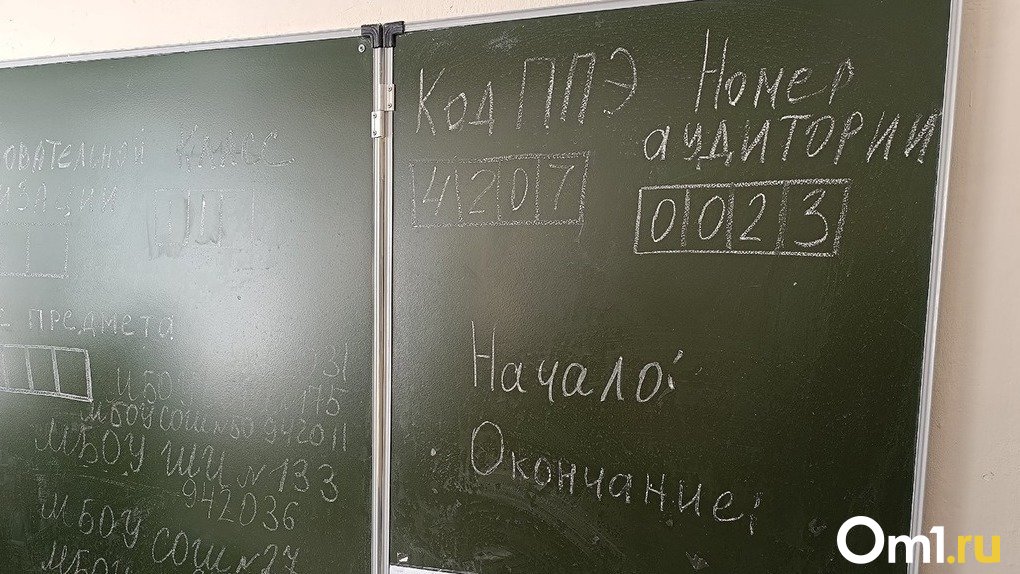 ОВАТЕЛЬНОЙ КЛАСС
ИЗАЦИИ
ПРЕДМЕТА
МБО 31
115
МБОУ СОШ №50 942011
МБОУ №133
942036
МБОУ СОШ №27
МБОУ
Код ППЭ
4207
Номер
аудитории
0023
Начало:
Окончание:
Om1.ru